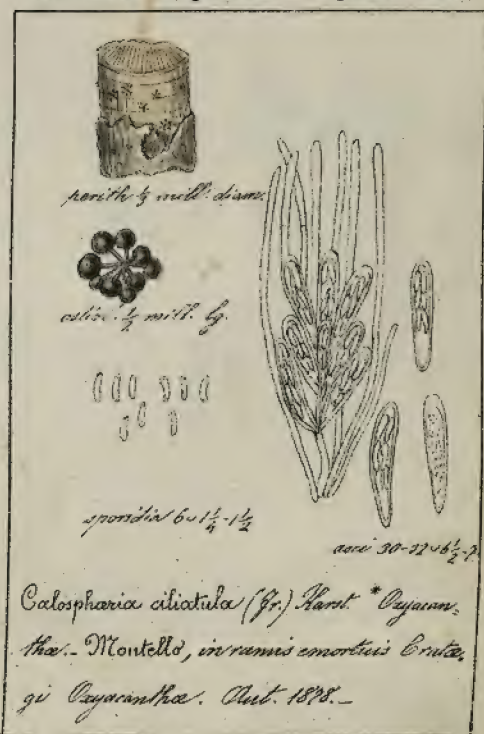 perith ⅓ mill. diam.
ostiol. ½ mill. lg.
sporidia 6 ‿ 1¼-1½
asci 30-32 ‿ 6½-7
Calosphæria ciliatula (Fr.) Karst. * Oxyacan=
thæ.- Montello, in ramis emortuis Cratæ=
gi Oxyacanthæ. Aut. 1878.-